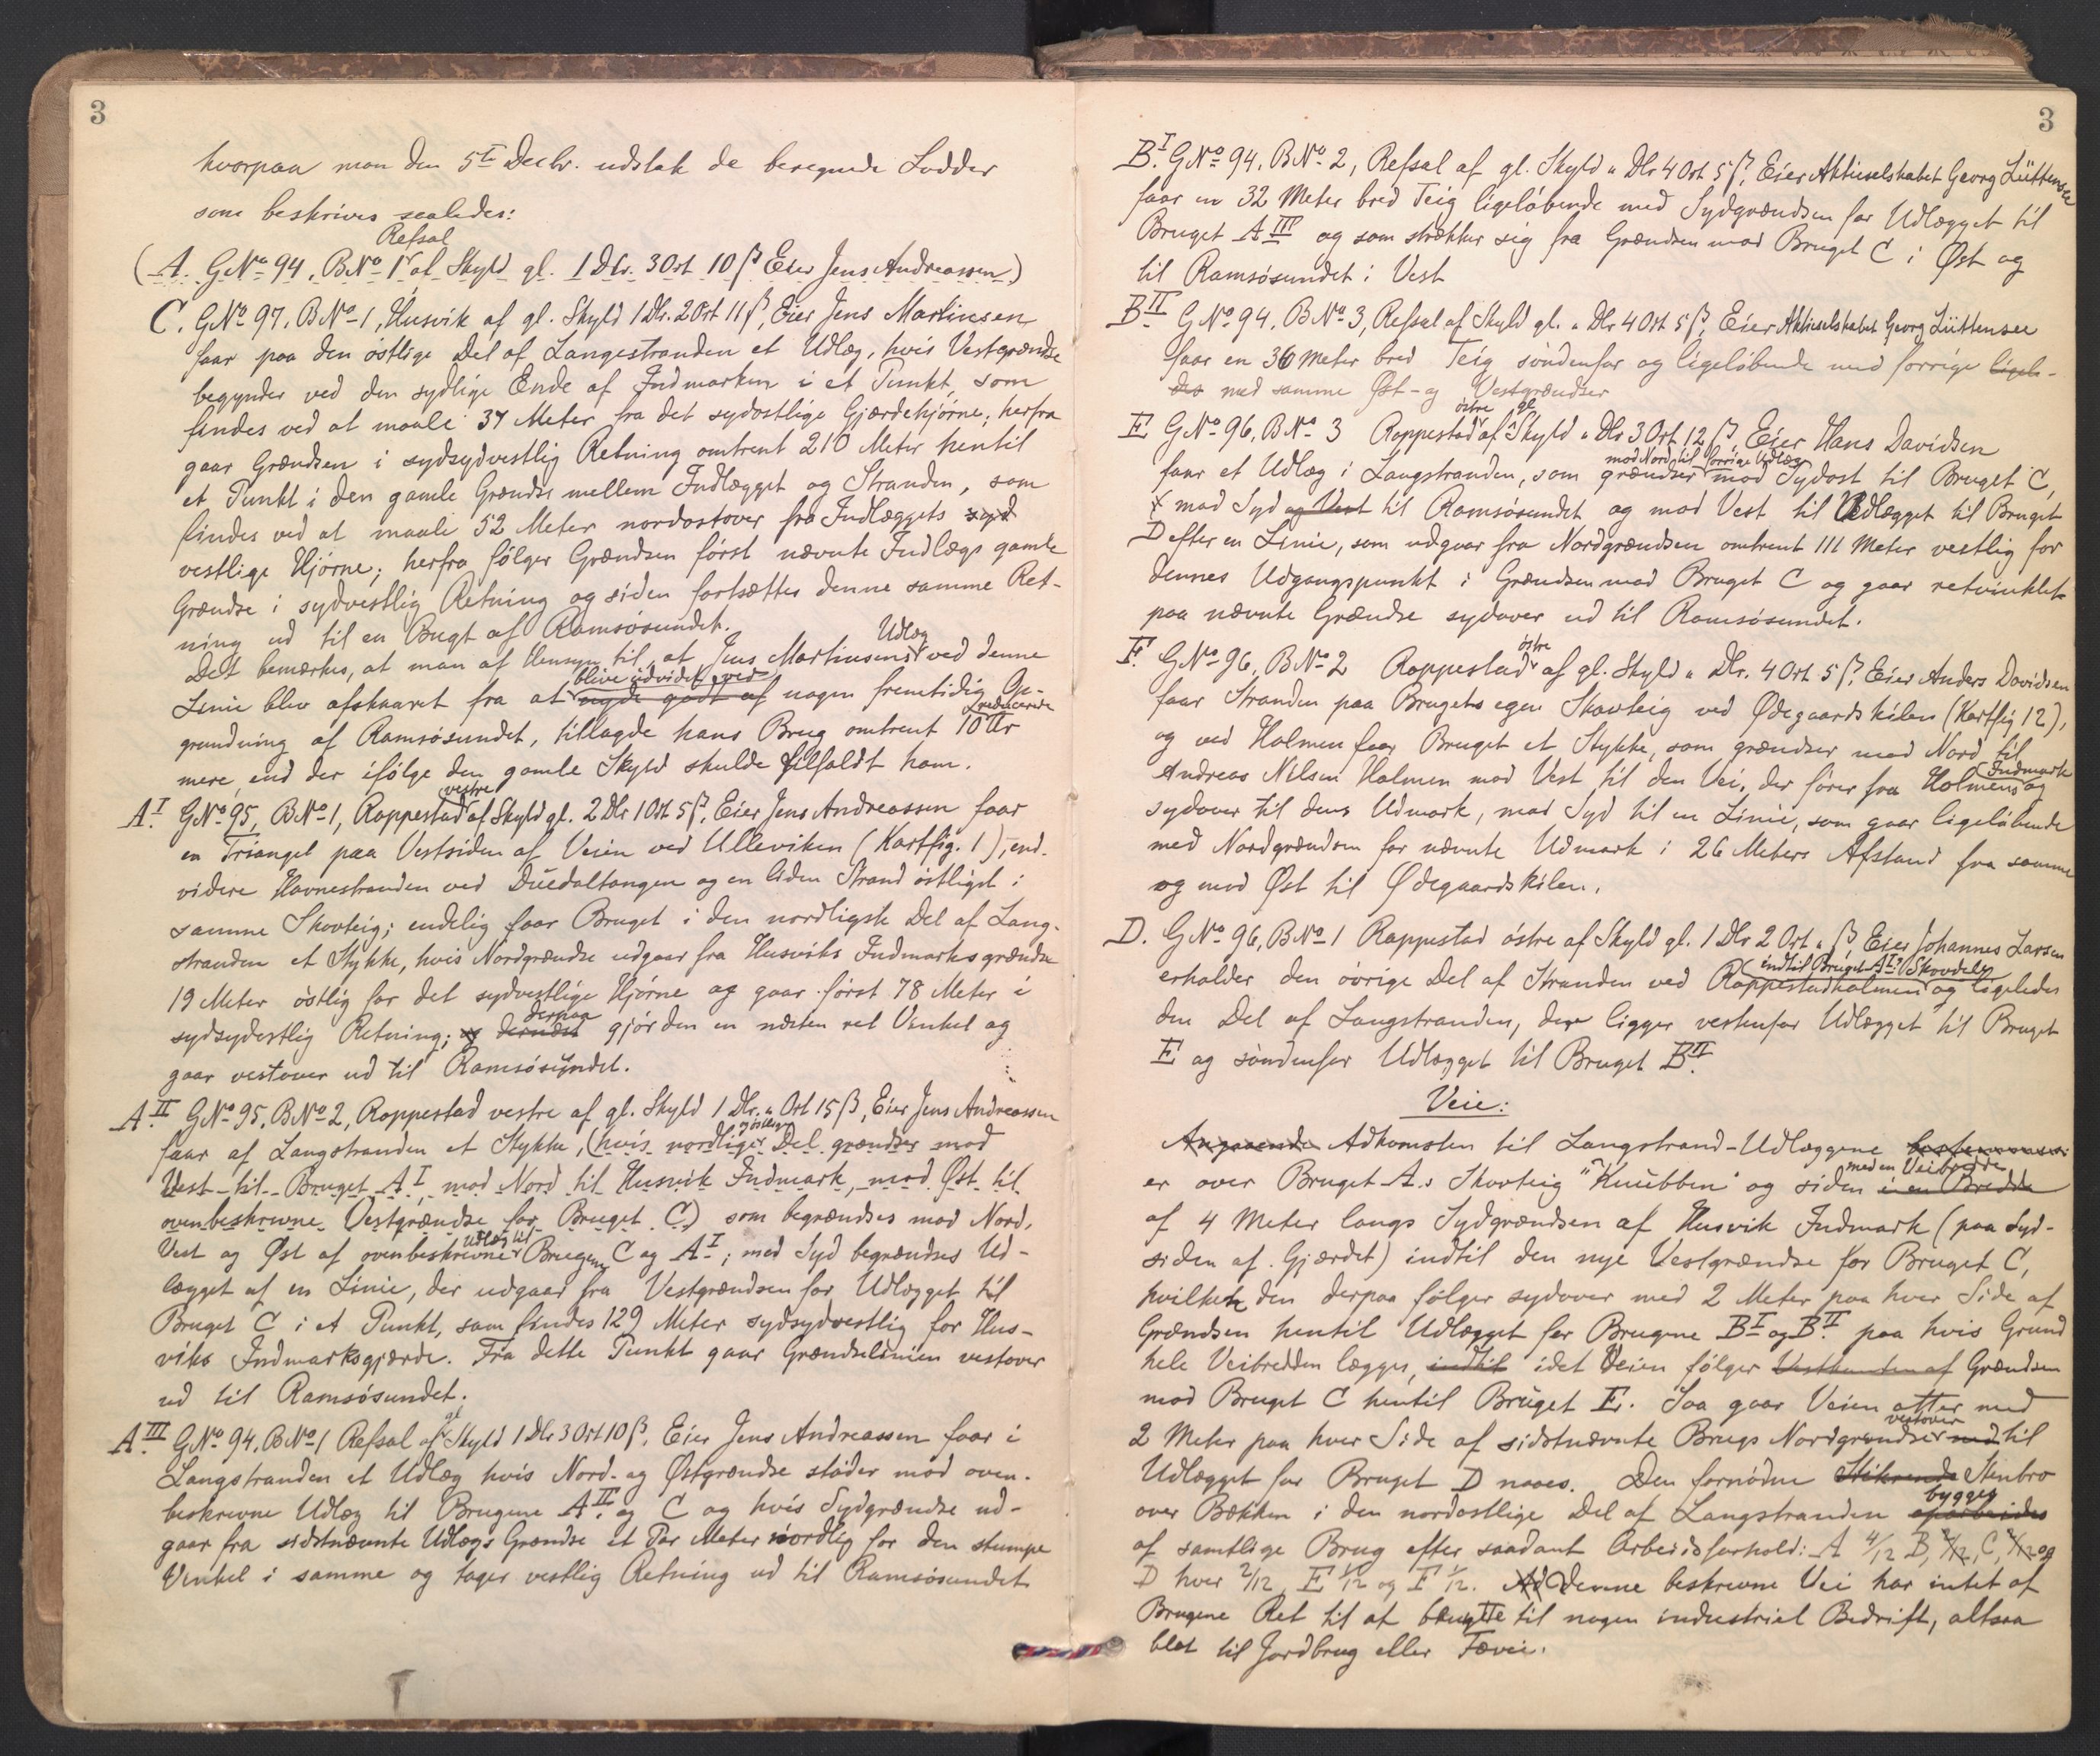 3
hvorpaa man den 5te Decbr. udstak de beregnede Lodder
som beskrives saaledes:
Refsal
(A. GNo 94, BNo 1 af Skyld gl. 1 Dlr. 3 Ort 10 β Eier Jens Andreassen)
C. GNo 97. BNo 1, Husvik af gl. Skyld 1 Dlr. 2 Ort 11 β, Eier Jens Martinsen
faar paa den östlige Del af Langestranden et Udlæg, hvis Vestgrændse
begynder ved den sydlige Ende af Indmarken i et Punkt, som
findes ved at maale 37 Meter fra det sydostlige Gjærdehjörne; herfra
gaar Grændsen i sydsydvestlig Retning omtrent 210 Meter hentil
et Punkt i den gamle Grændse mellem Indlægget og Stranden, som
findes ved at maale 52 Meter nordostover fra Indlæggets syd
vestlige Hjörne; herfra fölger Grændsen först nævnte Indlægs gamle
Grændse i sydvestlig Retning og siden fortsættes denne samme Ret-
ning ud til en Bugt af Ramsösundet.
Udlæg
Det bemærkes, at man af Hensyn til, at Jens Martinsens ved denne
blive udvidet ved
Linie blev afskaaret fra at nyde godt af nogen fremtidig Op-
reducerede
grundning af Ramsösundet, tillagde hans Brug omtrent 10 Ar
mere, end der ifölge den gamle Skyld skulde tilfaldt ham.
vestre
A I. GNo 95, BNo 1, Roppestad af Skyld gl. 2 Dlr 1 Ort 5 β, Eier Jens Andreassen faar
en Triangel paa Vestsiden af Veien ved Ulleviken (Kartfig. 1), end-
videre Havnestranden ved Duedaltangen og en liden Strand östligst i
samme Skovteig; endelig faar Bruget i den nordligste Del af Lang-
stranden et Stykke, hvis Nordgrændse udgaar fra Husviks Indmarksgrændse
19 Meter östlig for det sydvestlige Hjörne og gaar först 78 Meter i
derpaa
sydsydestlig Retning; og dernæst gjör den en næsten ret Vinkel og
gaar vestover ud til Ramsösundet.
A II. GNo 95, BNo 2, Roppestad vestre af gl. Skyld 1 Dlr. " Ort 15 β, Eier Jens Andreassen
og östlige
faar af Langstranden et Stykke, (hvis nordlige Del grændser mod
Vest til Bruget A I, mod Nord til Husvik Indmark, mod Öst til
ovenbeskrevne Vestgrændse for Bruget C) som begrændses mod Nord,
Udlæg til
Vest og Øst af ovenbeskrevne Brugene C og A I; mod Syd begrændses Ud-
lægget af en Linie, der udgaar fra Vestgrændsen for Udlægget til
Bruget C i et Punkt, som findes 129 Meter sydsydvestlig for Hus-
viks Indmarksgjærde. Fra dette Punkt gaar Grændselinien vestover
ud til Ramsösundet.
gl
A III. GNo 94, BNo 1 Refsal af Skyld 1 Dlr 3 Ort 10 β, Eier Jens Andreassen faar i
Langstranden et Udlæg hvis Nord- og Østgrændse stöder mod oven-
beskrevne Udlæg til Brugene A II. og C og hvis Sydgrændse ud-
gaar fra sidstnævnte Udlægs Grændse et Par Meter nordlig for den stumpe
Vinkel i samme og tager vestlig Retning ud til Ramsösundet
3
B I. GNo 94, BNo 2, Refsal af gl. Skyld " Dlr 4 Ort 5 β, Eier Aktieselskabet Georg Lüttensee
faar en 32 Meter bred Teig ligelöbende med Sydgrændsen for Udlægget til
Bruget A III og som strækker sig fra Grændsen mod Bruget C i Øst og
til Ramsösundet i Vest
B II GNo 94, BNo 3, Refsal af Skyld gl. " Dlr 4 Ort 5 β, Eier Aktieselskabet Georg Lüttensee
faar en 36 Meter bred Teig söndenfor og ligelöbende med forrige ligele-
des med samme Øst- og Vestgrændser
östre gl
E GNo 96, BNo 3 Roppestad af Skyld " Dlr 3 Ort 12 β, Eier Hans Davidsen
mod Nord til forrige Udlæg
faar et Udlæg i Langstranden, som grændser mod Sydost til Bruget C,
mod Syd og Vest til Ramsösundet og mod Vest til Udlægget til Bruget
D efter en Linie, som udgaar fra Nordgrændsen omtrent 111 Meter vestlig for
dennes Udgangspunkt i Grændsen mod Bruget C og gaar retvinklet
paa nævnte Grændse sydover ud til Ramsösundet.
östre
F. GNo 96, BNo 2 Roppestad af gl. Skyld " Dlr. 4 Ort 5 β, Eier Anders Davidsen
faar Stranden paa Brugets egen Skovteig ved Ødegaardskilen (Kartfig 12),
og ved Holmen faar Bruget et Stykke, som grændser mod Nord til
Indmark
Andreas Nilsen Holmen mod Vest til den Vei, der förer fra Holmens og
sydover til dens Udmark, mod Syd til en Linie, som gaar ligelöbende
med Nordgrændsen for nævnte Udmark i 26 Meters Afstand fra samme
og mod Øst til Ødegaardskilen.
D. GNo 96, BNo 1 Roppestad östre af Skyld gl. 1 Dlr 2 Ort " β, Eier Johannes Larsen
indtil Bruget A I's Skovdele
erholder den övrige Del af Stranden ved Roppestadholmen og ligeledes
den Del af Langstranden, der ligger vestenfor Udlægget til Bruget
E og söndenfor Udlægget til Bruget B II.
Veie:
Angaaende Adkomsten til Langstrand-Udlæggene bestemmes:
med en Veibredde
er over Bruget A.s Skovteig "Knubben" og siden i en Bredde
af 4 Meter langs Sydgrændsen af Husvik Indmark (paa Syd-
siden af Gjærdet) indtil den nye Vestgrændse for Bruget C,
hvilken den derpaa fölger sydover med 2 Meter paa hver Side af
Grændsen hentil Udlægget for Brugene B I og B II. paa hvis Grund
hele Veibredden lægges, indtil idet Veien fölger Vestkanten af Grændsen
mod Bruget C hentil Bruget E. Saa gaar Veien atter med
vestover
2 Meter paa hver Side af sidstnævnte Brugs Nordgrændse ned til
Udlægget for Bruget D naaes. Den fornödne Stikrende Stenbro
bygges
over Bækken i den nordostlige Del af Langstranden oparbeides
af samtlige Brug efter saadant Arbeidsforhold: A 4/12 B, 2/12, C, 2/12 og
D hver 2/12, E 1/12 og F 1/12. Ad Denne beskrevne Vei har intet af
Brugene Ret til at benytte til nogen industriel Bedrift, altsaa
blot til Jordbrug eller Fævei.